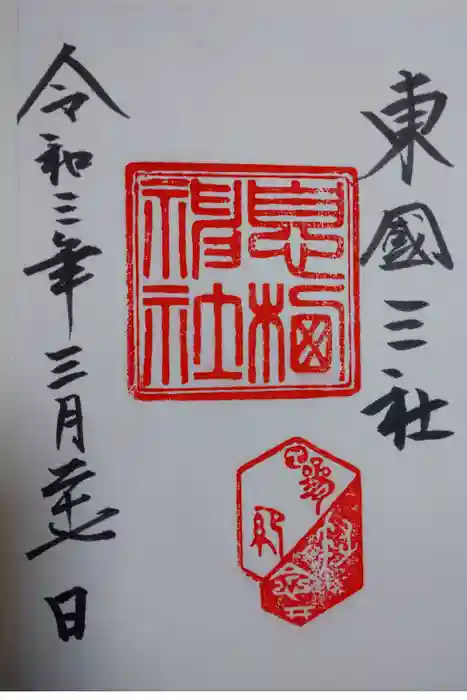 東國三社
息栖
神社
令和三年三月二十七日